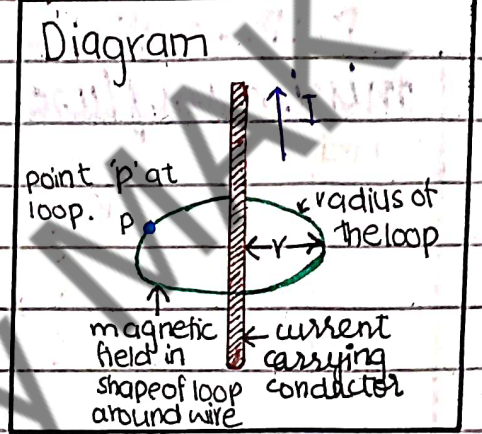 Diagram
I
point 'p' at
loop.
P
radius of
the loop
r
magnetic
field in
shape of loop
around wire
current
carrying
conductor
MAK